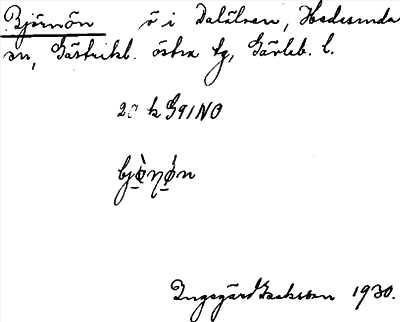 Björnön ö i Dalälven, Hedesunda
sn, Gästrikl. östra tg, Gävleb. l.
20 k G91NO
Ingegärd Isaksson 1930.